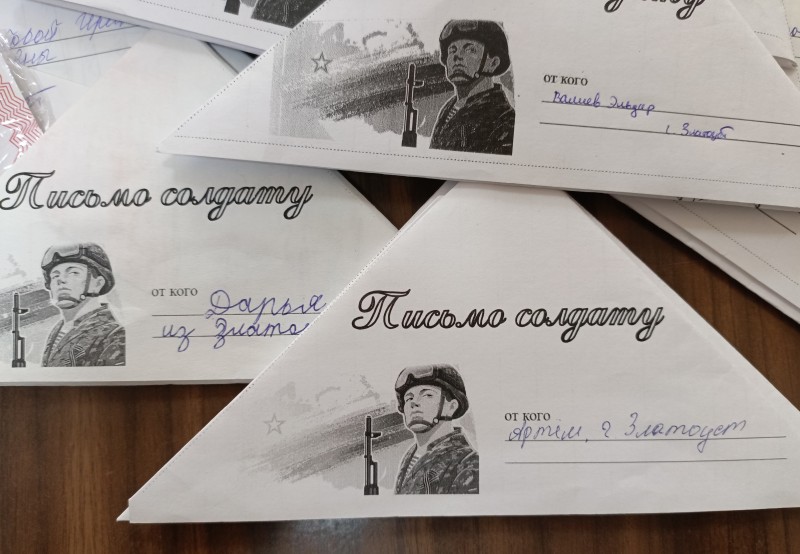 ОТ КОГО
Валиев Эльдар
г. Златоуст
Письмо солдату
ОТ КОГО
Дарья
из Злато
Письмо солдату
ОТ КОГО
Артём, г Златоуст